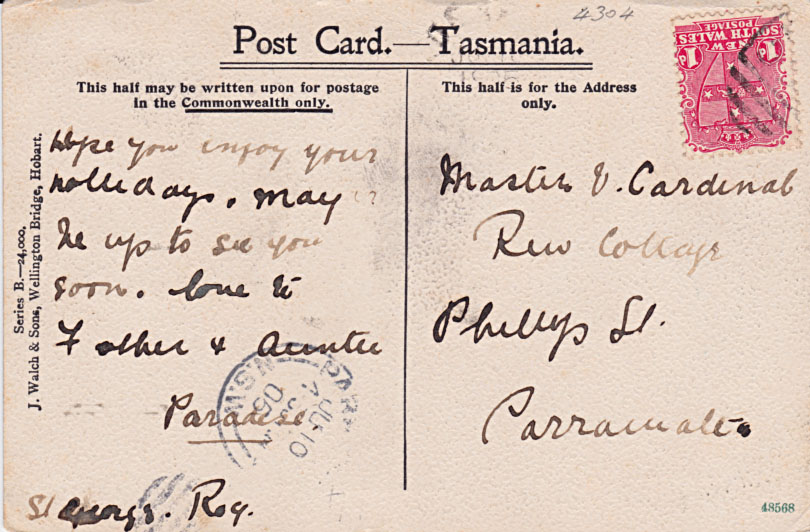 4304
Post Card.—Tasmania.
This half may be written upon for postage
in the Commonwealth only.
This half is for the Address
only.
NEW
SOUTH WALES
POSTAGE
1d 1d
Hope you enjoy your
hollidays. May
be up to see you
soon. love to
Father & Auntie
Paradise
St George. Roy.
Master V. Cardinal
Rew Cottage
Phillips St.
Parramatta
Series B.—24,000.
J. Walch & Sons, Wellington Bridge, Hobart.
PAR
N.S.W
JU 10
06
48568